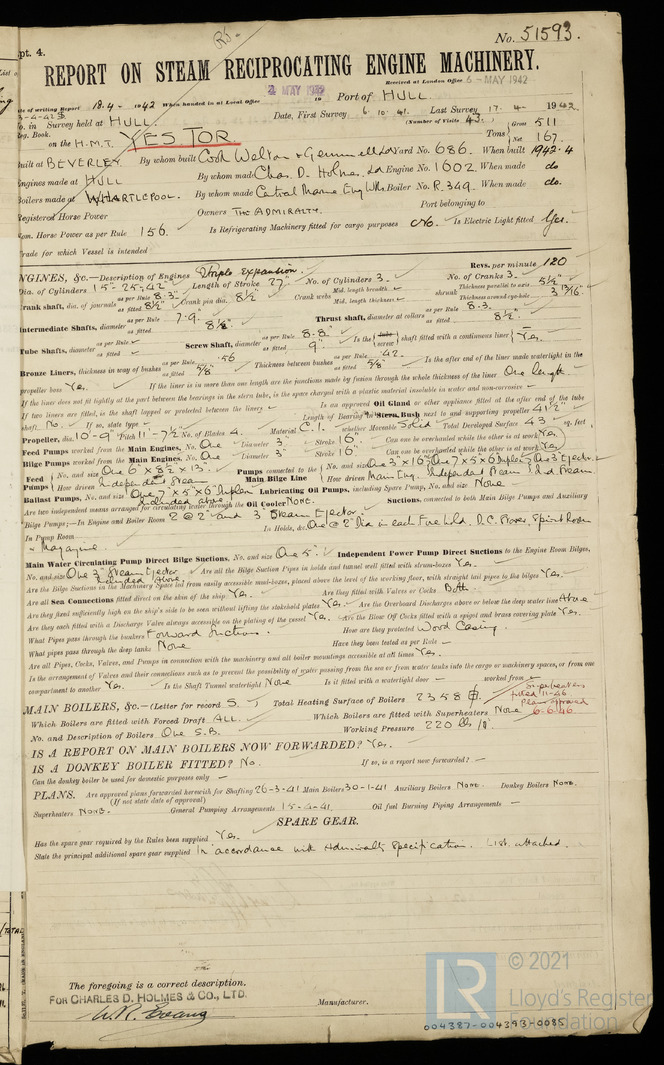 pt. 4.
No. 51593.
REPORT ON STEAM RECIPROCATING ENGINE MACHINERY.
Received at London Office 6 - MAY 1942
4 MAY 1942
of writing Report 18.4 - 1942 When handed in at Local Office 19 Port of HULL
No. in Survey held at HULL Date, First Survey 6.10.41. Last Survey 17 - 4 - 1942.
Reg. Book. (Number of Visits 43.)
on the H.M.T. YES TOR. Tons Gross 511 Net 167.
Built at BEVERLEY By whom built Cook Welton & Gemmell Ld Yard No. 686. When built 1942-4
Engines made at HULL By whom made Chas. D. Holmes, Ld Engine No. 1602 When made do.
Boilers made at W HARTLEPOOL By whom made Central Marine Eng Wks Boiler No. R.349. When made do.
Registered Horse Power Owners THE ADMIRALTY. Port belonging to
Nom. Horse Power as per Rule 156. Is Refrigerating Machinery fitted for cargo purposes No. Is Electric Light fitted Yes.
Trade for which Vessel is intended
ENGINES, &c.—Description of Engines Triple Expansion. Revs. per minute 120
Dia. of Cylinders 15-25-42 Length of Stroke 27" No. of Cylinders 3. No. of Cranks 3.
Crank shaft, dia. of journals as per Rule 8.3 as fitted 8½" Crank pin dia. 8½" Crank webs Mid. length breadth Mid. length thickness shrunk Thickness parallel to axis 5½" Thickness around eye-hole 3 13/16"
Intermediate Shafts, diameter as per Rule 7.9 as fitted 8¼" Thrust shaft, diameter at collars as per Rule 8.3 as fitted 8½"
Tube Shafts, diameter as per Rule as fitted Screw Shaft, diameter as per Rule 8.8 as fitted 9" Is the screw shaft fitted with a continuous liner Yes.
Bronze Liners, thickness in way of bushes as per Rule .56 as fitted 5/8" Thickness between bushes as per Rule .42 as fitted 5/8" Is the after end of the liner made watertight in the
propeller boss Yes. If the liner is in more than one length are the junctions made by fusion through the whole thickness of the liner One length.
If the liner does not fit tightly at the part between the bearings in the stern tube, is the space charged with a plastic material insoluble in water and non-corrosive
If two liners are fitted, is the shaft lapped or protected between the liners Is an approved Oil Gland or other appliance fitted at the after end of the tube
shaft No. If so, state type Length of Bearing in Stern Bush next to and supporting propeller 41½"
Propeller, dia. 10'-9" Pitch 11'-7½" No. of Blades 4. Material C.I. whether Moveable Solid Total Developed Surface 43 sq. feet
Feed Pumps worked from the Main Engines, No. One Diameter 3" Stroke 16" Can one be overhauled while the other is at work Yes
Bilge Pumps worked from the Main Engines, No. One Diameter 3" Stroke 16" Can one be overhauled while the other is at work Yes
Feed Pumps No. and size One 6" x 8½" x 13" Pumps connected to the Main Bilge Line No. and size One 3" x 16" One 7x5x6 Duplex One 3" Ejector.
How driven Independent Steam How driven Main Eng. Independent Steam Ind. Steam.
Ballast Pumps, No. and size One 7"x5"x6" Duplex Included above Lubricating Oil Pumps, including Spare Pump, No. and size None
Are two independent means arranged for circulating water through the Oil Cooler NONE. Suctions, connected to both Main Bilge Pumps and Auxiliary
Bilge Pumps;—In Engine and Boiler Room 2 @ 2" and 3" Steam Ejector.
In Pump Room In Holds, &c. One @ 2" Dia in each Fwd Hold. D.C. Stores, Spirit Room
& Magazine
Main Water Circulating Pump Direct Bilge Suctions, No. and size One 5". Independent Power Pump Direct Suctions to the Engine Room Bilges,
No. and size One 3" Steam Ejector Included above Are all the Bilge Suction Pipes in holds and tunnel well fitted with strum-boxes Yes.
Are the Bilge Suctions in the Machinery Space led from easily accessible mud-boxes, placed above the level of the working floor, with straight tail pipes to the bilges Yes.
Are all Sea Connections fitted direct on the skin of the ship Yes. Are they fitted with Valves or Cocks Both.
Are they fixed sufficiently high on the ship's side to be seen without lifting the stokehold plates Yes. Are the Overboard Discharges above or below the deep water line Above
Are they each fitted with a Discharge Valve always accessible on the plating of the vessel Yes. Are the Blow Off Cocks fitted with a spigot and brass covering plate Yes.
What Pipes pass through the bunkers Forward Suctions. How are they protected Wood Casing.
What pipes pass through the deep tanks None Have they been tested as per Rule
Are all Pipes, Cocks, Valves, and Pumps in connection with the machinery and all boiler mountings accessible at all times Yes.
Is the arrangement of Valves and their connections such as to prevent the possibility of water passing from the sea or from water tanks into the cargo or machinery spaces, or from one
compartment to another Yes. Is the Shaft Tunnel watertight None Is it fitted with a watertight door worked from
Superheaters fitted 11-46
Plan approved 6-6-46
MAIN BOILERS, &c.—(Letter for record S.) Total Heating Surface of Boilers 2358
Which Boilers are fitted with Forced Draft ALL. Which Boilers are fitted with Superheaters None
No. and Description of Boilers One S.B. Working Pressure 220 lbs
IS A REPORT ON MAIN BOILERS NOW FORWARDED? Yes.
IS A DONKEY BOILER FITTED? No. If so, is a report now forwarded? -
Can the donkey boiler be used for domestic purposes only -
PLANS. Are approved plans forwarded herewith for Shafting 26-3-41 Main Boilers 30-1-41 Auxiliary Boilers NONE. Donkey Boilers NONE.
(If not state date of approval)
Superheaters NONE. General Pumping Arrangements 15-4-41. Oil fuel Burning Piping Arrangements —
SPARE GEAR.
Has the spare gear required by the Rules been supplied Yes.
State the principal additional spare gear supplied In accordance with Admiralty Specification. List attached.
The foregoing is a correct description.
FOR CHARLES D. HOLMES & CO., LTD.
W.R. Evans Manufacturer.
© 2021
LR
Lloyd's Register
Foundation
004387-004393-0085